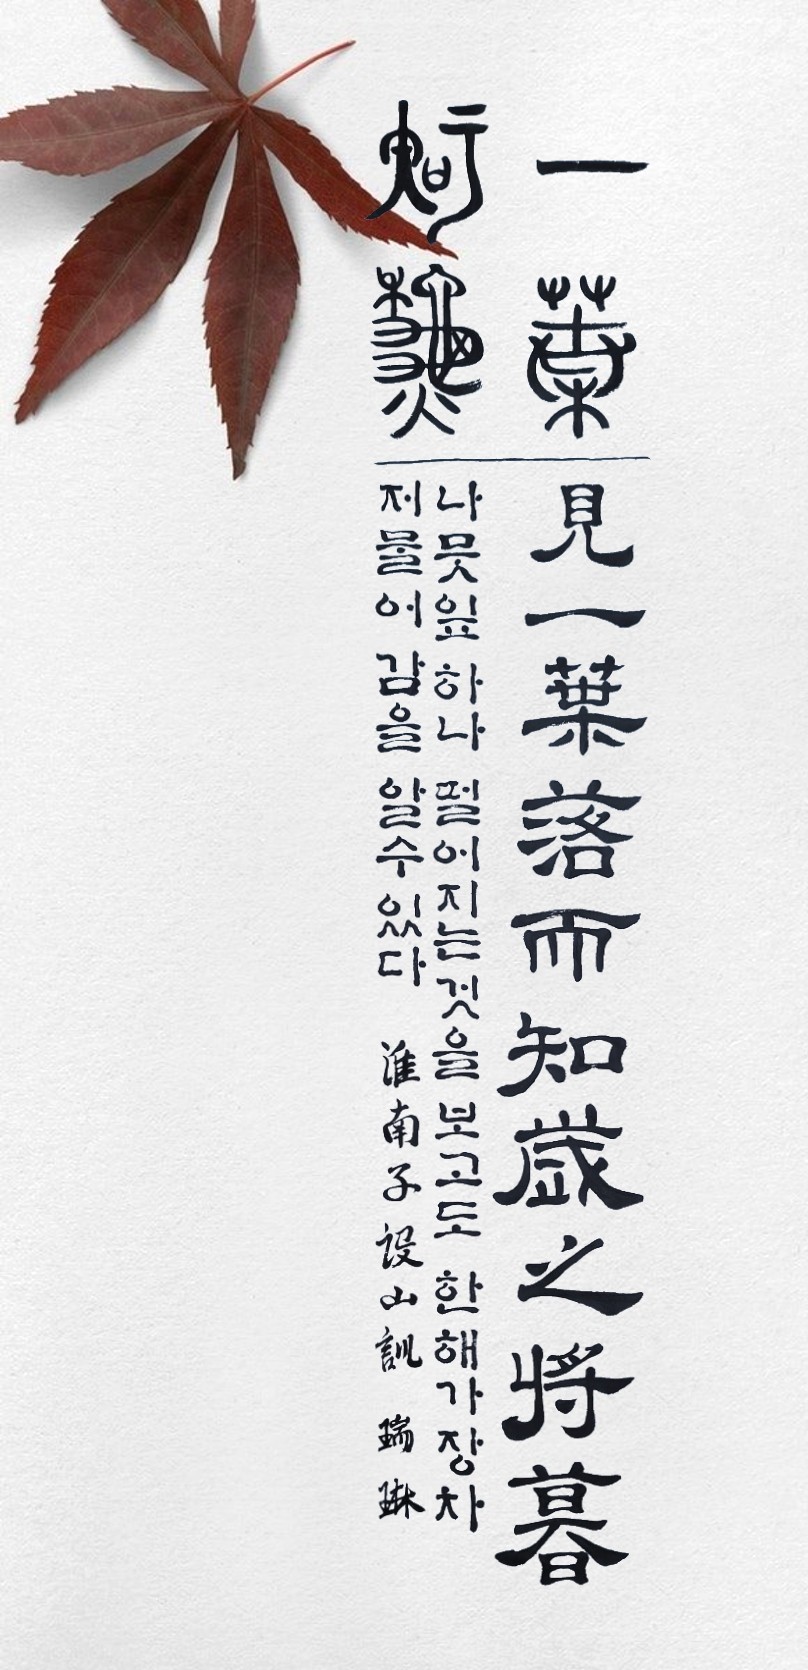 一葉
知秋
見一葉落而知歲之將暮
나뭇잎 하나 떨어지는것을 보고도 한해가 장차
저물어 감을 알수있다 淮南子設山訓 瑞琳